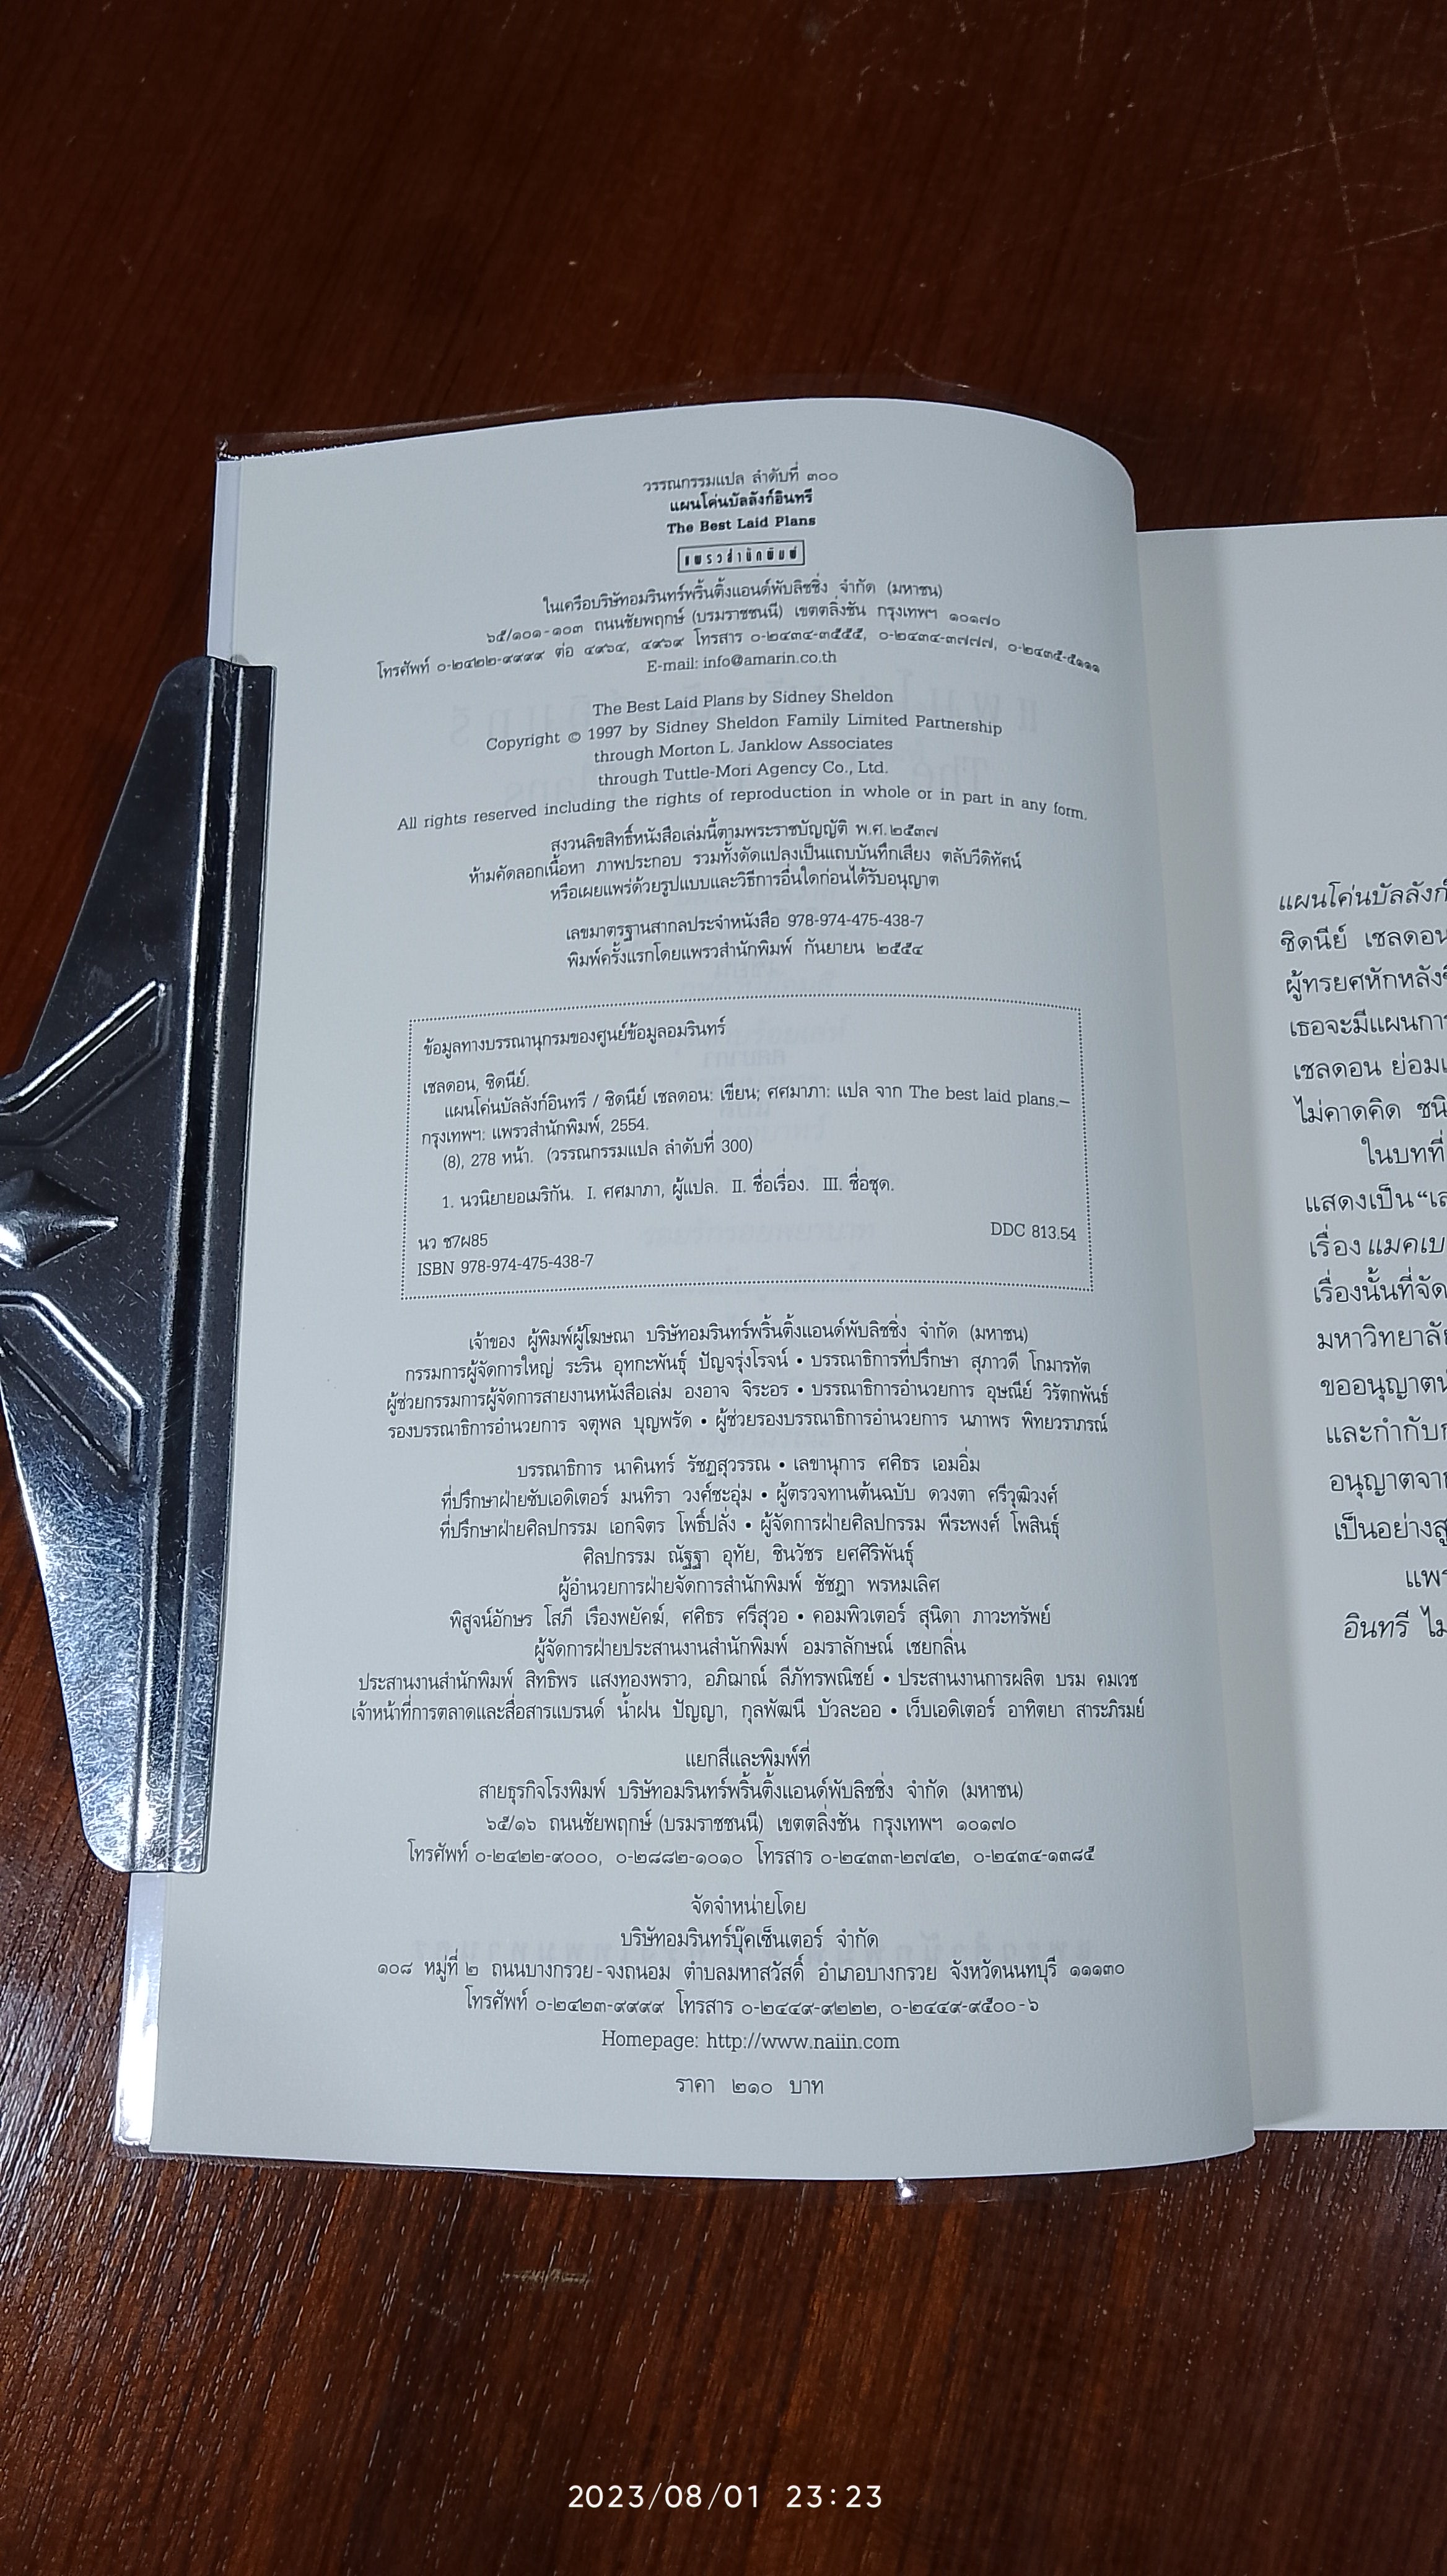 วรรณกรรมแปล ลำดับที่ ๓๐๐
แผนโค่นบัลลังก์อินทรี
The Best Laid Plans
แพรวสำนักพิมพ์
ในเครือบริษัทอมรินทร์พริ้นติ้งแอนด์พับลิชชิ่ง จำกัด (มหาชน)
๖๕/๑๐๑-๑๐๓ ถนนชัยพฤกษ์ (บรมราชชนนี) เขตตลิ่งชัน กรุงเทพฯ ๑๐๑๗๐
โทรศัพท์ ๐-๒๔๒๒-๙๙๙๙ ต่อ ๔๙๖๔, ๔๙๖๙ โทรสาร ๐-๒๔๓๔-๓๕๕๕, ๐-๒๔๓๔-๓๗๗๗, ๐-๒๔๓๕-๕๑๑๑
E-mail: info@amarin.co.th
The Best Laid Plans by Sidney Sheldon
Copyright © 1997 by Sidney Sheldon Family Limited Partnership
through Morton L. Janklow Associates
through Tuttle-Mori Agency Co., Ltd.
All rights reserved including the rights of reproduction in whole or in part in any form.
สงวนลิขสิทธิ์หนังสือเล่มนี้ตามพระราชบัญญัติ พ.ศ. ๒๕๓๗
ห้ามคัดลอกเนื้อหา ภาพประกอบ รวมทั้งดัดแปลงเป็นแถบบันทึกเสียง ตลับวีดิทัศน์
หรือเผยแพร่ด้วยรูปแบบและวิธีการอื่นใดก่อนได้รับอนุญาต
เลขมาตรฐานสากลประจำหนังสือ 978-974-475-438-7
พิมพ์ครั้งแรกโดยแพรวสำนักพิมพ์ กันยายน ๒๕๕๔
ข้อมูลทางบรรณานุกรมของศูนย์ข้อมูลอมรินทร์
เชลดอน, ซิดนีย์.
แผนโค่นบัลลังก์อินทรี / ซิดนีย์ เชลดอน: เขียน; ศศมาภา: แปล จาก The best laid plans.–
กรุงเทพฯ: แพรวสำนักพิมพ์, 2554.
(8), 278 หน้า. (วรรณกรรมแปล ลำดับที่ 300)
1. นวนิยายอเมริกัน. I. ศศมาภา, ผู้แปล. II. ชื่อเรื่อง. III. ชื่อชุด.
นว ซ7ผ85
DDC 813.54
ISBN 978-974-475-438-7
เจ้าของ ผู้พิมพ์ผู้โฆษณา บริษัทอมรินทร์พริ้นติ้งแอนด์พับลิชชิ่ง จำกัด (มหาชน)
กรรมการผู้จัดการใหญ่ ระริน อุทกะพันธุ์ ปัญจรุ่งโรจน์ • บรรณาธิการที่ปรึกษา สุภาวดี โกมารทัต
ผู้ช่วยกรรมการผู้จัดการสายงานหนังสือเล่ม องอาจ จิระอร • บรรณาธิการอำนวยการ อุษณีย์ วิรัตกพันธ์
รองบรรณาธิการอำนวยการ จตุพล บุญพรัด • ผู้ช่วยรองบรรณาธิการอำนวยการ นภาพร พิทยวราภรณ์
บรรณาธิการ นาคินทร์ รัชฏสุวรรณ • เลขานุการ ศศิธร เอมอิ่ม
ที่ปรึกษาฝ่ายซับเอดิเตอร์ มนทิรา วงศ์ชะอุ่ม • ผู้ตรวจทานต้นฉบับ ดวงตา ศรีวุฒิวงศ์
ที่ปรึกษาฝ่ายศิลปกรรม เอกจิตร โพธิ์ปลั่ง • ผู้จัดการฝ่ายศิลปกรรม พีระพงศ์ โพสินธุ์
ศิลปกรรม ณัฐฐา อุทัย, ชินวัชร ยศศิริพันธุ์
ผู้อำนวยการฝ่ายจัดการสำนักพิมพ์ ชัชฎา พรหมเลิศ
พิสูจน์อักษร โสภี เรืองพยัคฆ์, ศศิธร ศรีสุวอ • คอมพิวเตอร์ สุนิดา ภาวะทรัพย์
ผู้จัดการฝ่ายประสานงานสำนักพิมพ์ อมราลักษณ์ เชยกลิ่น
ประสานงานสำนักพิมพ์ สิทธิพร แสงทองพราว, อภิฌาณ์ ลีภัทรพณิชย์ • ประสานงานการผลิต บรม คมเวช
เจ้าหน้าที่การตลาดและสื่อสารแบรนด์ น้ำฝน ปัญญา, กุลพัฒนี บัวละออ • เว็บเอดิเตอร์ อาทิตยา สาระภิรมย์
แยกสีและพิมพ์ที่
สายธุรกิจโรงพิมพ์ บริษัทอมรินทร์พริ้นติ้งแอนด์พับลิชชิ่ง จำกัด (มหาชน)
๖๕/๑๖ ถนนชัยพฤกษ์ (บรมราชชนนี) เขตตลิ่งชัน กรุงเทพฯ ๑๐๑๗๐
โทรศัพท์ ๐-๒๔๒๒-๙๐๐๐, ๐-๒๘๘๒-๑๐๑๐ โทรสาร ๐-๒๔๓๓-๒๗๔๒, ๐-๒๔๓๔-๑๓๘๕
จัดจำหน่ายโดย
บริษัทอมรินทร์บุ๊คเซ็นเตอร์ จำกัด
๑๐๘ หมู่ที่ ๒ ถนนบางกรวย-จงถนอม ตำบลมหาสวัสดิ์ อำเภอบางกรวย จังหวัดนนทบุรี ๑๑๑๓๐
โทรศัพท์ ๐-๒๔๒๓-๙๙๙๙ โทรสาร ๐-๒๔๔๙-๙๒๒๒, ๐-๒๔๔๙-๙๕๐๐-๖
Homepage: http://www.naiin.com
ราคา ๒๑๐ บาท
แผนโค่นบัลลังก์
ซิดนีย์ เชลดอน
ผู้ทรยศหักหลัง
เธอจะมีแผนการ
เชลดอน ย่อม
ไม่คาดคิด
ในบทที่
แสดงเป็น
เรื่อง แมคเบ
เรื่องนั้นที่จัด
มหาวิทยาลัย
ขออนุญาต
และกำกับ
อนุญาตจาก
เป็นอย่างสู
แพร
อินทรี
2023/08/01 23:23